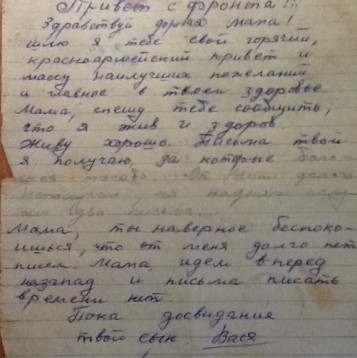 Привет с фронта!!!
Здравствуй дорогая мама!
шлю я тебе свой горячий,
красноармейский привет и
массу наилучших пожеланий
и главное в твоем здоровье
Мама, спешу тебе сообщить,
что я жив и здоров
Живу хорошо. Письма твои
я получаю, за которые
долго
два письма
Мама, ты наверное беспоко-
ишься, что от меня долго нет
писем. Мама, идем вперед
назапад и письма писать
времени нет.
Пока досвидания
твой сын Вася